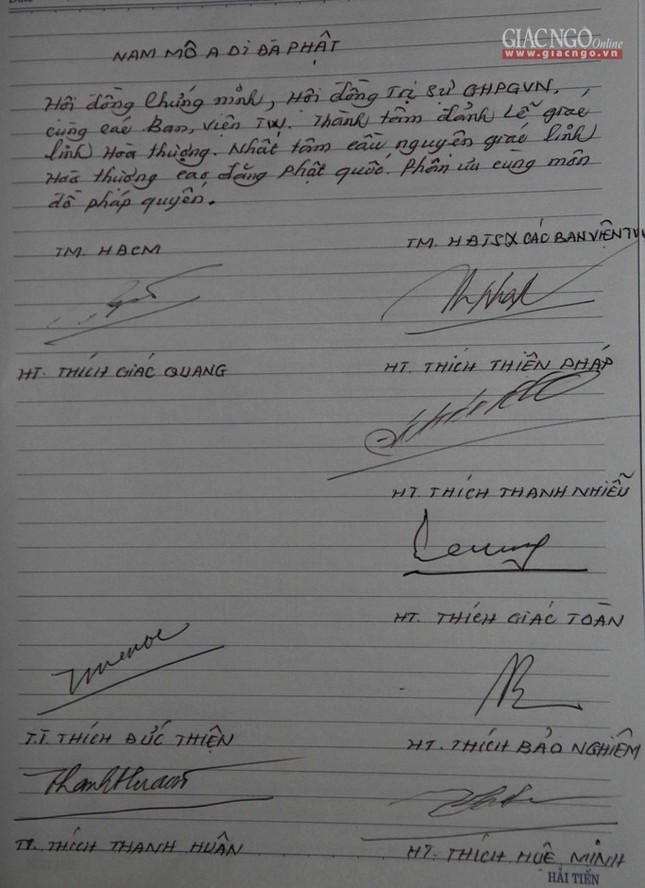 GIÁC NGỘ Online
www.giacngo.vn
NAM MÔ A DI ĐÀ PHẬT
Hội đồng Chứng minh, Hội đồng Trị sự GHPGVN,
cùng các Ban, Viện TW. Thành tâm đảnh lễ giác
linh Hòa thượng. Nhất tâm cầu nguyện giác linh
Hòa thượng cao đăng Phật quốc. Phân ưu cùng môn
đồ pháp quyến.
TM. HĐCM
TM. HĐTS & CÁC BAN VIỆN TW
HT. THÍCH GIÁC QUANG
HT. THÍCH THIỆN PHÁP
HT. THÍCH THANH NHIỄU
HT. THÍCH GIÁC TOÀN
T.T. THÍCH ĐỨC THIỆN
HT. THÍCH BẢO NGHIÊM
TT. THÍCH THANH HUÂN
HT. THÍCH HUỆ MINH
HẢI TIẾN